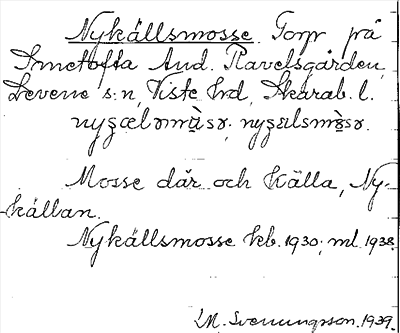 Nykällsmosse. Torp på
Smetofta And. Ravelsgården,
Levene s:n, Viste hd, Skarab. l.
Mosse där och Källa, Ny-
källan.
Nykällsmosse kb. 1930; ml 1938.
M. Svenungsson. 1939.